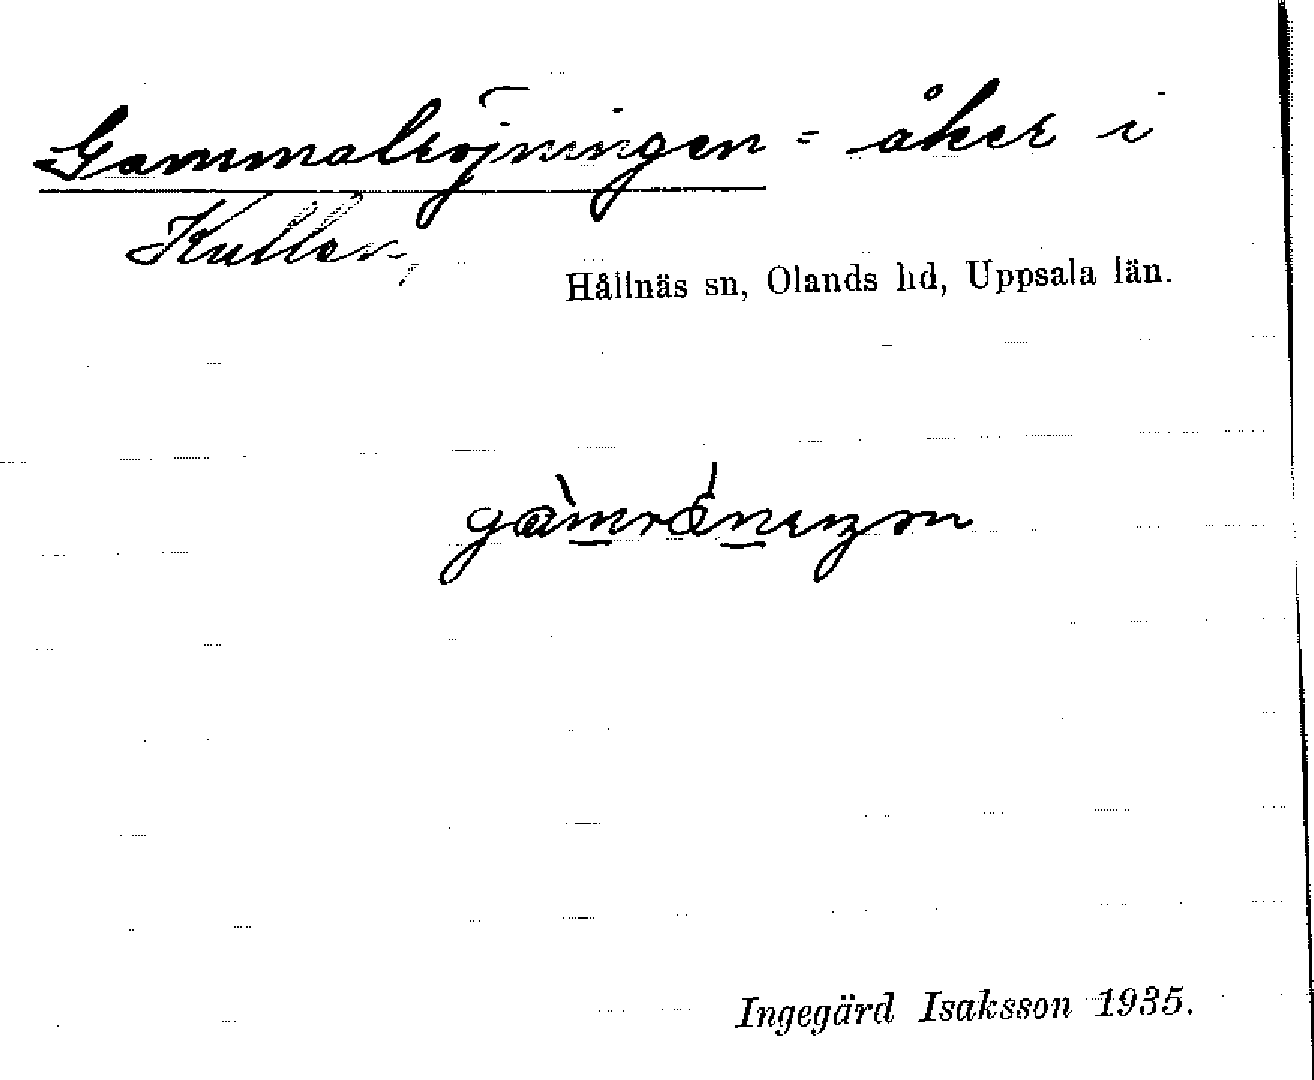 Gammalröjningen = åker i
Kuller,
Hållnäs sn, Olands hd, Uppsala län.
Ingegärd Isaksson 1935.